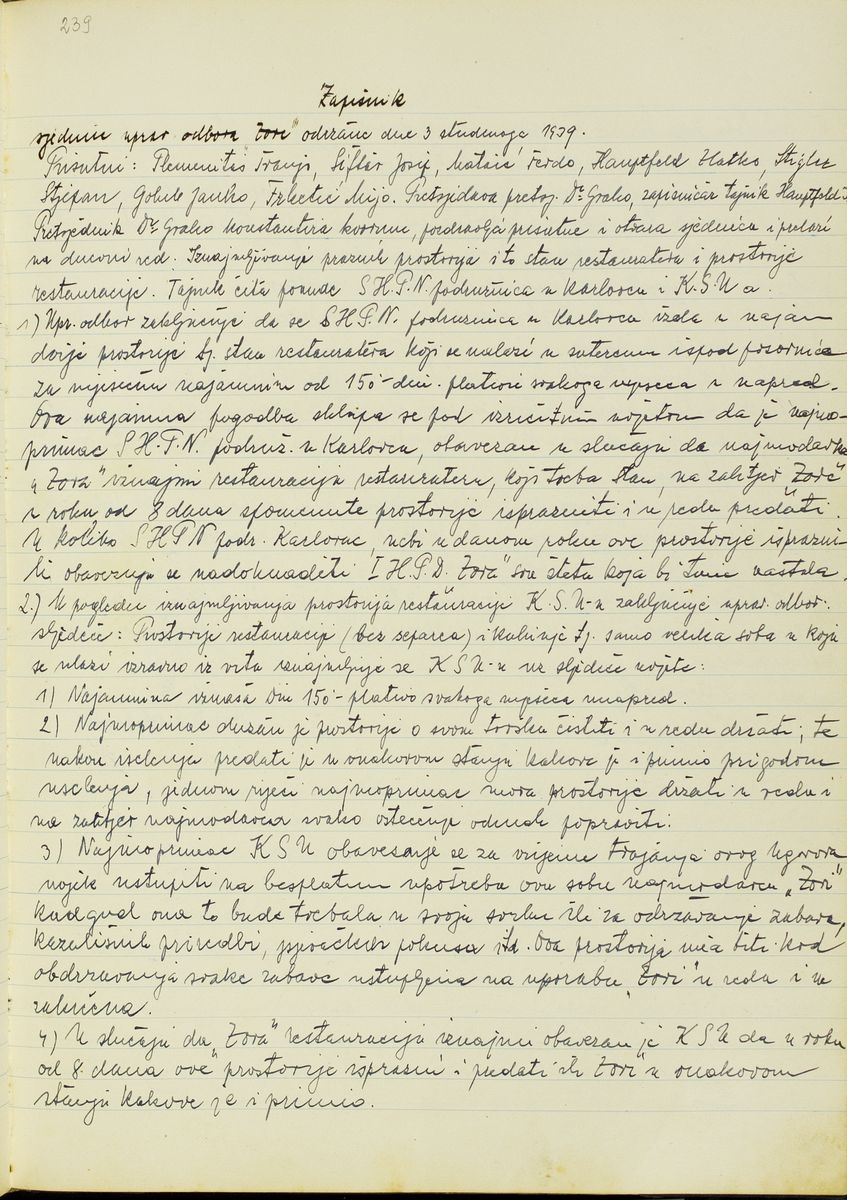 239
Zapisnik
sjednice uprav. odbora "Zore" održane dne 3 studenoga 1939.
Prisutni: Plemenitaš Franjo, Šiftar Josip, Matasić Ferdo, Hauptfeld Zlatko, Stigler
Stjepan, Golub Janko, Frketić Mijo. Pretsjedava pretsj. Dr Grabo, zapisničar tajnik Hauptfeld
Pretsjednik Dr Grabo konstantira kvorum, pozdravlja prisutne i otvara sjednicu i prelazi
na dnevni red. Iznajmljivanje praznih prostorija i to stan restauratera i prostorije
restauracije. Tajnik čita ponude S.H.P.N. podružnica u Karlovcu i K.S.U a.
1) Upr. odbor zaključuje da se S.H.P.N. podružnica u Karlovcu izda u najam
dvije prostorije tj. stan restauratera koji se nalazi u suterenu ispod pozornice
za mjesečnu najamninu od 150- din. plativi svakoga mjeseca u napred.
Ova najamna pogodba sklapa se pod izričitim uvjetom da je najmo-
primac S.H.P.N. podruž. u Karlovcu, obavezan u slučaju da najmodavka
"Zora" iznajmi restauraciju restaurateru, koji treba stan, na zahtjev "Zore"
u roku od 8 dana spomenute prostorije isprazniti i u redu predati.
U koliko SHPN podr. Karlovac, nebi u danom roku ove prostorije isprazni-
li obavezuju se nadoknaditi I H.P.D. "Zora" svu štetu koja bi time nastala.
2.) U pogledu iznajmljivanja prostorija restauracije K.S.U-u zaključuje uprav. odbor:
sljedeće: Prostorije restauracije (bez separea) i kuhinje tj. samo velika soba u koju
se ulazi izravno iz vrta iznajmljuje se KSU-u uz sljedeće uvjete:
1) Najamnina iznaša Din 150- plativo svakoga mjeseca unapred.
2) Najmoprimac dužan je prostorije o svom trošku čistiti i u redu držati, te
nakon iselenja predati je u onakovom stanju kakove je i primio prigodom
uselenja, jednom riječi najmoprimac mora prostorije držati u redu i
na zahtjev najmodavca svako oštećenje odmah popraviti.
3) Najmoprimac KSU obavezanje se za vrijeme trajanja ovog ugovora
uvjek ustupiti na besplatnu upotrebu ovu sobu najmodavcu "Zori"
kadgod ona to bude trebala u svoju svrhu ili za održavanje zabava,
kazališnih priredbi, pjevačkih pokusa itd. Ova prostorija mora biti kod
obdržavanja svake zabave ustupljena na uporabu "Zori" u redu i ne
zaključna.
4) U slučaju da "Zora" restauraciju iznajmi obavezan je KSU da u roku
od 8 dana ove prostorije isprazni i predati ih "Zori" u onakovom
stanju kakove je i primio.